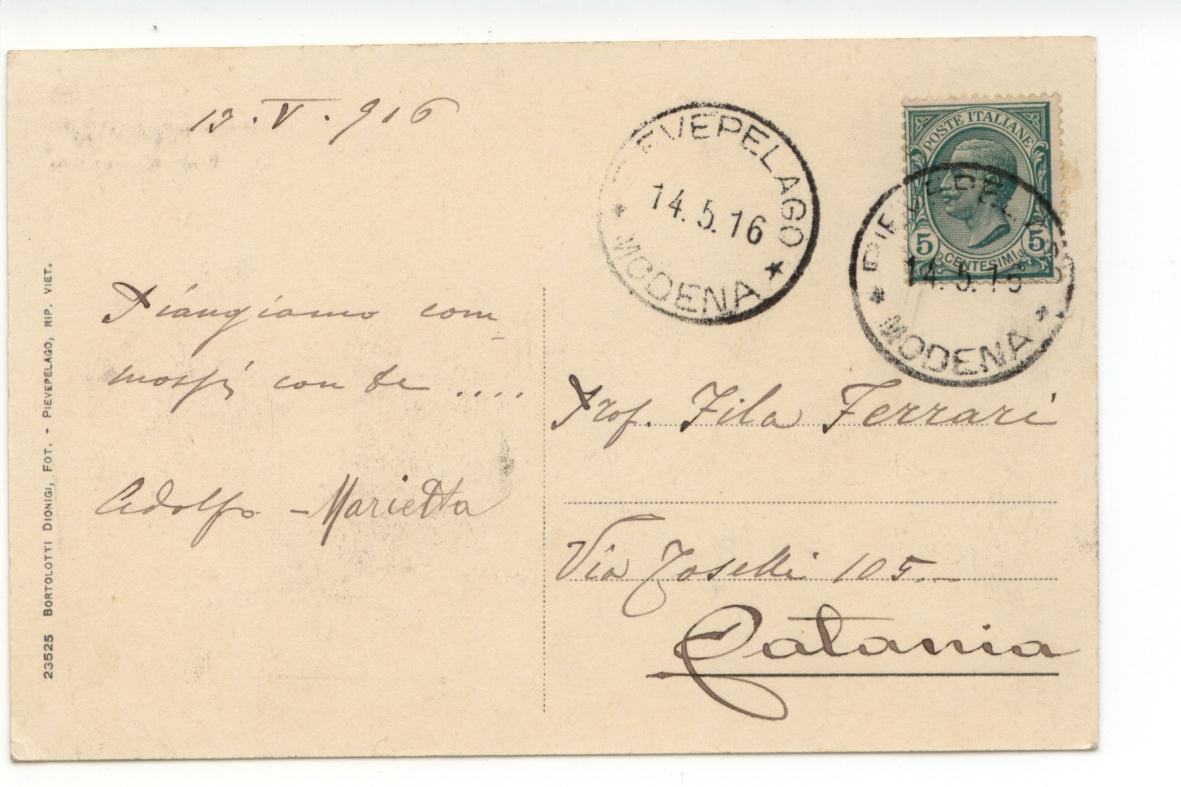 13.V.916
PIEVEPELAGO
14.5.16
* MODENA *
POSTE ITALIANE
5 CENTESIMI 5
PIEVEPELAGO
14.5.16
* MODENA *
Piangiamo com-
mossi con te ....
Adolfo - Marietta
Prof. Fila Ferrari
Via Toselli 105.-
Catania
23525 BORTOLOTTI DIONIGI, FOT. - PIEVEPELAGO, RIP. VIET.